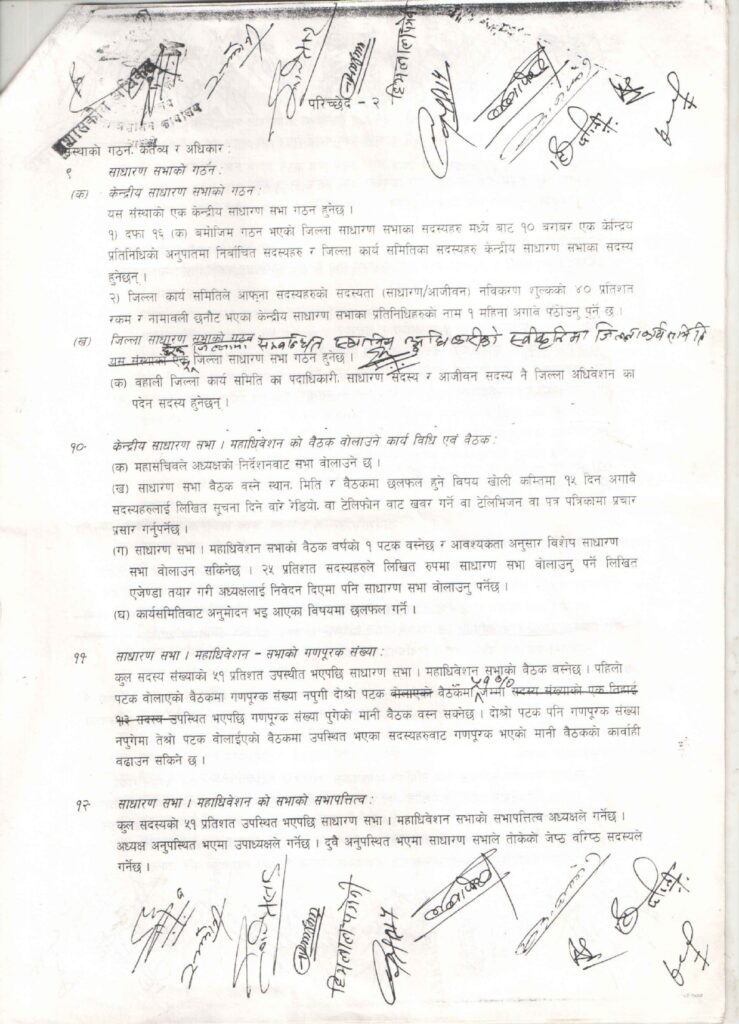 हिमलाल पत्रेवी
परिच्छेद - २
संस्थाको गठन, कर्तव्य र अधिकार :
९ साधारण सभाको गठन :
(क) केन्द्रीय साधारण सभाको गठन :
यस संस्थाको एक केन्द्रीय साधारण सभा गठन हुनेछ ।
१) दफा १६ (क) बमोजिम गठन भएको जिल्ला साधारण सभाका सदस्यहरु मध्ये बाट १० बराबर एक केन्द्रिय
प्रतिनिधिको अनुपातमा निर्वाचित सदस्यहरु र जिल्ला कार्य समितिका सदस्यहरु केन्द्रीय साधारण सभाका सदस्य
हुनेछन् ।
२) जिल्ला कार्य समितिले आफ्ना सदस्यहरुको सदस्यता (साधारण/आजीवन) नविकरण शुल्कको ४० प्रतिशत
रकम र नामावली छनौट भएका केन्द्रीय साधारण सभाका प्रतिनिधिहरुको नाम १ महिना अगावै पठाउनु पर्ने छ ।
(ख) जिल्ला साधारण सभाको गठन
जिल्लामा सम्वन्धित स्थानिय अधिकारीको स्वीकृतिमा
यस संस्थाको एक जिल्ला साधारण सभा गठन हुनेछ ।
(क) वहाली जिल्ला कार्य समिति का पदाधिकारी, साधारण सदस्य र आजीवन सदस्य नै जिल्ला अधिवेशन का
पदेन सदस्य हुनेछन् ।
१०. केन्द्रीय साधारण सभा । महाधिवेशन को वैठक वोलाउने कार्य विधि एवं वैठक :
(क) महासचिवले अध्यक्षको निर्देशनवाट सभा वोलाउने छ ।
(ख) साधारण सभा वैठक वस्ने स्थान, मिति र वैठकमा छलफल हुने विषय खोली कम्तिमा १५ दिन अगावै
सदस्यहरुलाई लिखित सूचना दिने वारे रेडियो, वा टेलिफोन वाट खवर गर्ने वा टेलिभिजन वा पत्र पत्रिकामा प्रचार
प्रसार गर्नुपर्नेछ ।
(ग) साधारण सभा । महाधिवेशन सभाको वैठक वर्षको १ पटक वस्नेछ र आवश्यकता अनुसार विशेष साधारण
सभा वोलाउन सकिनेछ । २५ प्रतिशत सदस्यहरुले लिखित रुपमा साधारण सभा वोलाउनु पर्ने लिखित
एजेण्डा तयार गरी अध्यक्षलाई निवेदन दिएमा पनि साधारण सभा वोलाउनु पर्नेछ ।
(घ) कार्यसमितिवाट अनुमोदन भइ आएका विषयमा छलफल गर्ने ।
११ साधारण सभा । महाधिवेशन - सभाको गणपूरक संख्या :
कुल सदस्य संख्याको ५१ प्रतिशत उपस्थीत भएपछि साधारण सभा । महाधिवेशन सभाको वैठक वस्नेछ । पहिलो
५१%
पटक वोलाएको वैठकमा गणपूरक संख्या नपुगी दोश्रो पटक वोलाएको वैठकमा जम्मा सदस्य संख्याको एक तिहाई
सदस्य उपस्थित भएपछि गणपूरक संख्या पुगेको मानी वैठक वस्न सक्नेछ । दोश्रो पटक पनि गणपूरक संख्या
नपुगेमा तेश्रो पटक वोलाईएको वैठकमा उपस्थित भएका सदस्यहरुवाट गणपूरक भएको मानी वैठकको कार्वाही
वढाउन सकिने छ ।
१२ साधारण सभा । महाधिवेशन को सभाको सभापत्तित्व :
कुल सदस्यको ५१ प्रतिशत उपस्थित भएपछि साधारण सभा । महाधिवेशन सभाको सभापत्तित्व अध्यक्षले गर्नेछ ।
अध्यक्ष अनुपस्थित भएमा उपाध्यक्षले गर्नेछ । दुवै अनुपस्थित भएमा साधारण सभाले तोकेको जेष्ठ वरिष्ठ सदस्यले
गर्नेछ ।
हिमलाल पत्रेवी